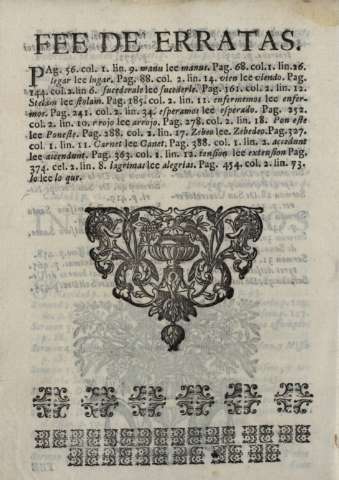 FEE DE ERRATAS.
PAg. 56. col. 1. lin. 9. manu lee manus. Pag. 68. col. 1. lin. 26.
legar lee lugar. Pag. 88. col. 2. lin. 14. vien lee viendo. Pag.
144. col. 2. lin 6. sucederale lee sucederle. Pag. 161. col. 2. lin. 12.
Stelam lee stolam. Pag. 185. col. 2. lin. 11. enfermemos lee enfer-
mos. Pag. 241. col. 2. lin. 34. esperamos lee esperado. Pag. 252.
col. 2. lin. 10. rrojo lee arrojo. Pag. 278. col. 2. lin. 18. Pon este
lee Poneste. Pag. 288. col. 2. lin. 17. Zebeo lee Zebedeo. Pag. 327.
col. 1. lin. 11. Carnet lee Canet. Pag. 388. col. 1. lin. 2. accedunt
lee accendunt. Pag. 363. col. 1. lin. 12. tension lee extension Pag.
374. col. 2. lin. 8. lagrimas lee alegrias. Pag. 454. col. 2. lin. 73.
lo lee lo que.